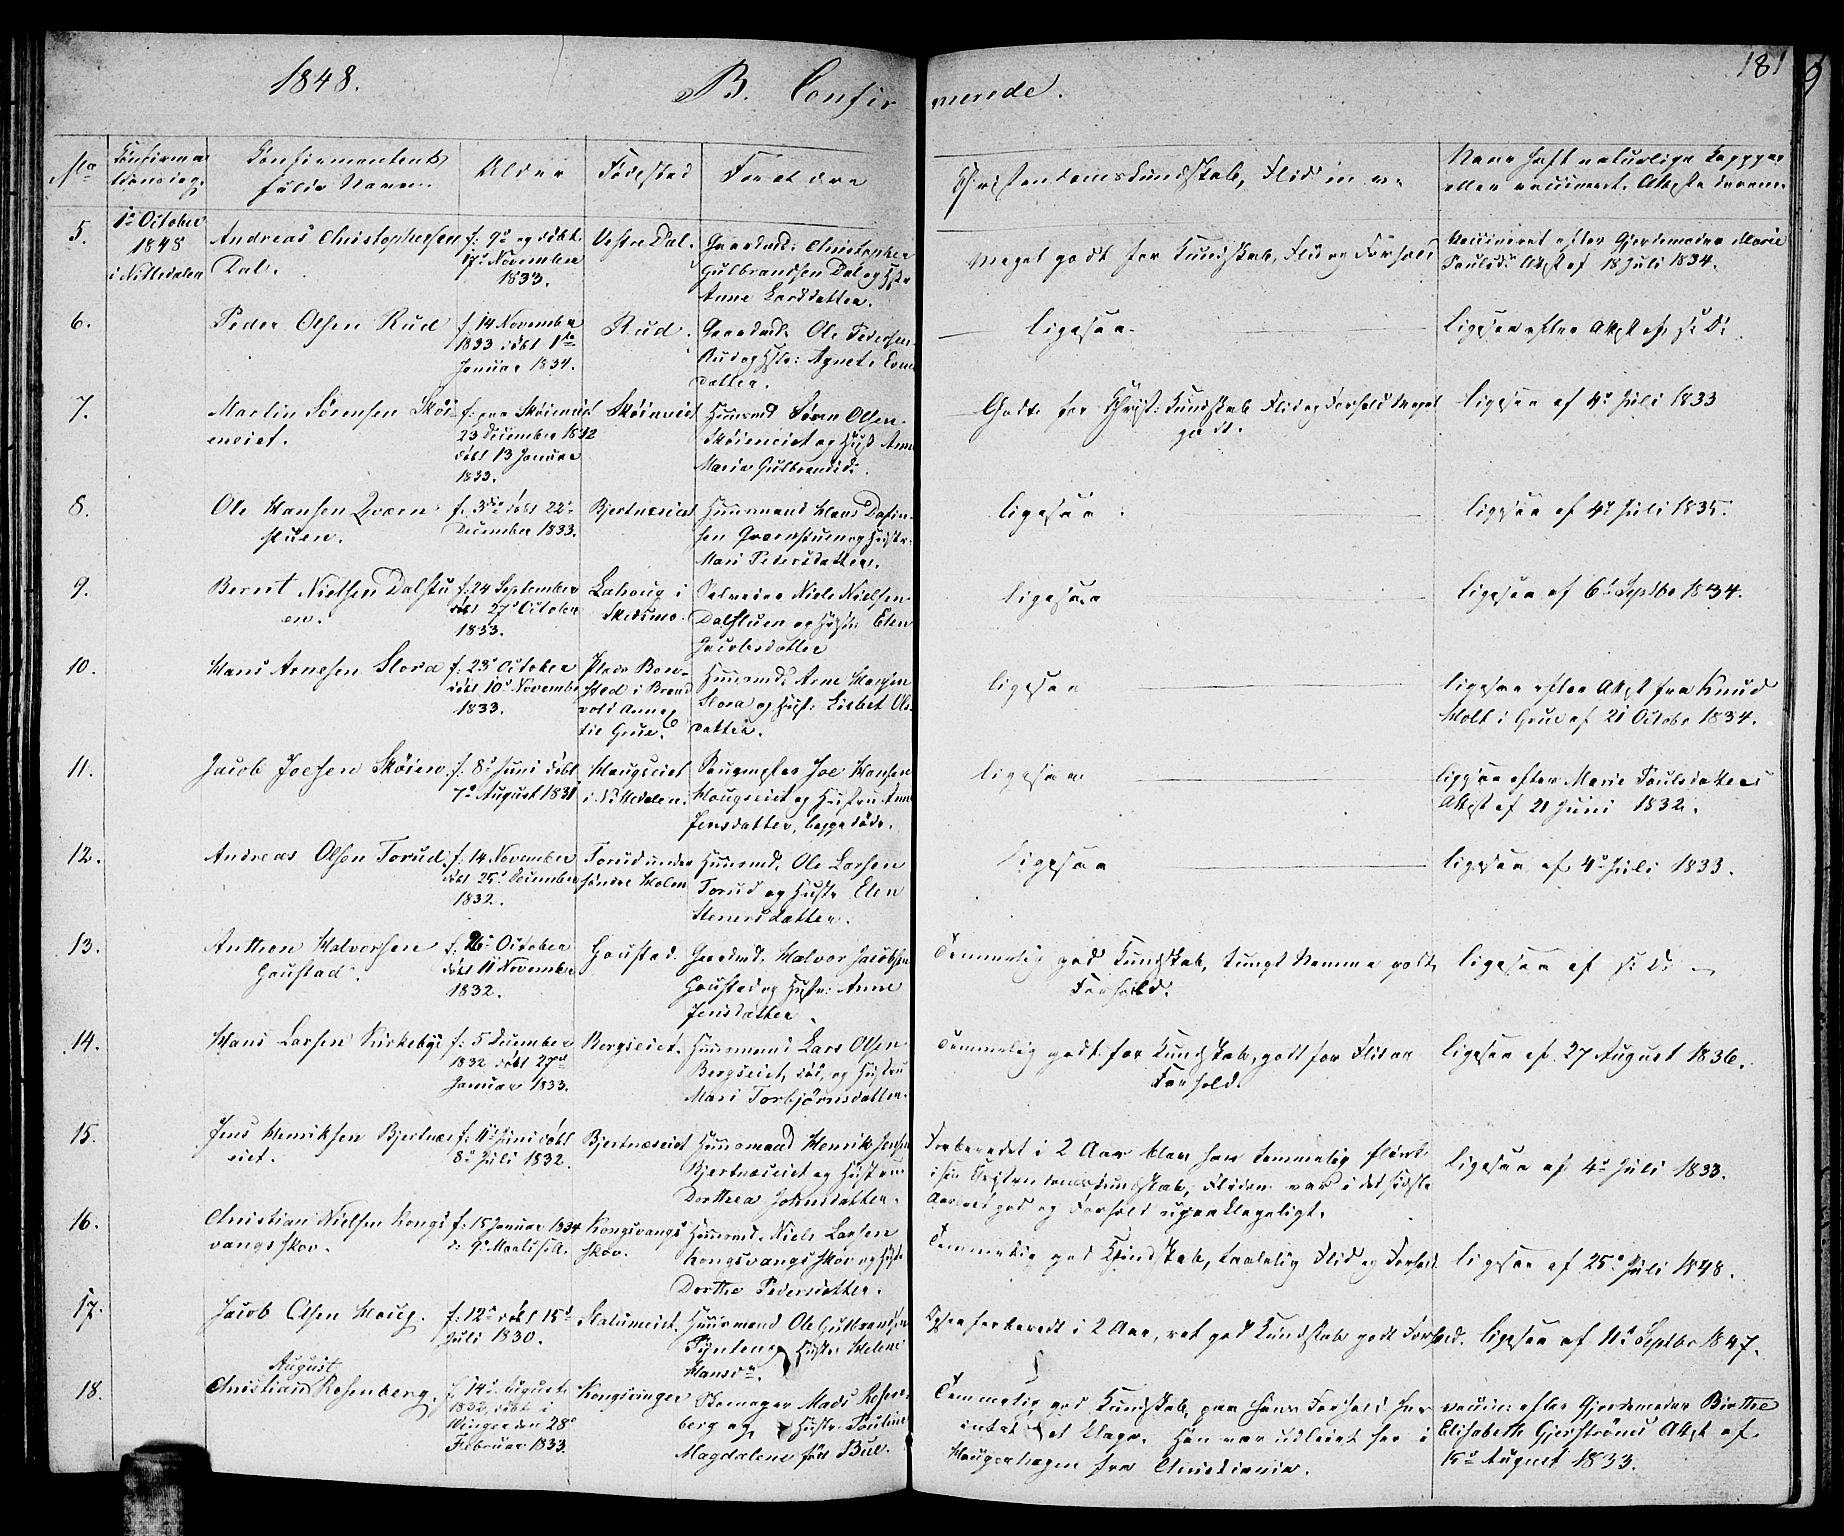 1848.
B. Confirmerede.
181
No
Confirma-
tionsdag.
Confirmantens
fulde Navn.
Alder
Fødested
Forældre
Christendomskundskab, Flid m. v.
Naar haft naturlige Kopper
eller vaccineret. Attester derom
5.
1ste October
1848
i Nittedalen
Andreas Christophersen
Dal.
f. 9de og døbt
17de November
1833.
Vestre Dal.
Gaardmd. Christopher
Gulbrandsen Dal og Hstr
Anne Larsdatter.
Meget godt for Kundskab, Flid og Forhold
Vaccineret efter Gjordemoder Marie
Poulsd. Attest af 18 Juli 1834.
6.
Peder Olsen Rud
f. 14 November
1833 døbt 1ste
Januar 1834.
Rud.
Gaardmd. Ole Pedersen
Rud og Hstr: Agnete Evens
datter.
ligesaa
ligesaa efter Attest af s. D.
7.
Martin Sørensen Skøi-
eneiet.
f. paa Skøieneiet
23 December 1832
døbt 13 Januar
1833.
Skøieneiet
Huusmd Søren Olsen
Skøieneiet og Hust Anne
Maria Gulbrandsd.
Godt for Christ. Kundskab Flid og Forhold meget
godt.
ligesaa af 4de Juli 1833
8.
Ole Hansen Qværn-
stuen.
f. 3die døbt 22de
December 1833.
Bjertnæseiet
Huusmand Hans Dafin-
sen Qværnstuen og Hustr.
Mari Pedersdatter.
ligesaa
ligesaa af 4de Juli 1835.
9.
Bernt Nielsen Dalstu-
en.
f. 24 September
døbt 27de October
1833.
Lahaug i
Skedsmo.
Niels Nielsen
Dalstuen og Hustr: Elen
Jacobsdatter
ligesaa
ligesaa af 6te Septbr 1834.
10.
Hans Arnesen Slora
f. 23de October
døbt 10de November
1833.
Plads Bon-
stad i Brand
vold Annex
til Grue.
Huusmd. Arne Hansen
Slora og Hust: Lisbet Ols
datter.
ligesaa
ligesaa efter Attest fra Knud
Holt i Grue af 21 Octobr 1834.
11.
Jacob Joesen Skøien.
f. 8de Juni døbt
7de August 1831
Haugseiet
i Nittedalen.
Joe Hansen
Haugseiet og Hustru Anne
Jensdatter, begge døde.
ligesaa
ligesaa efter Marie Poulsdatters
Attest af 21 Juni 1832.
12.
Andreas Olsen Torud.
f. 14 November
døbt 25de December
1832.
Torud under
søndre Holm
Huusmd. Ole Larsen
Torud og Hustr Elen
Stenersdatter.
ligesaa
ligesaa af 4de Juli 1833.
13.
Anthon Halvorsen
Goustad.
f. 26de October
døbt 11te November
1832.
Goustad.
Gaardmd. Halvor Jacobsen
Goustad og Hustr: Anne
Jensdatter.
Temmelig god Kundskab, tungt Nemme godt
Forhold.
ligesaa af s. D.
14.
Hans Larsen Kirkebye
f. 5 December
1832 døbt 27de
Januar 1833.
Bergseiet.
Huusmand Lars Olsen
Bergseiet, død, og Hustru
Mari Torbjørnsdatter.
Temmelig godt for Kundskab, godt for Flid og
Forhold.
ligesaa af 27 August 1836.
15.
Jens Henriksen Bjertnæs
eiet.
f. 11te Juni døbt
8de Juli 1832.
Bjertnæseiet
Huusmand Henrik Jensen
Bjertnæseiet og Hustru
Dorthea Johnsdatter.
Forberedet i 2 Aar blev han temmelig flink
i sin Christendomskundskab, Fliden var i det sidste
Aar god og Forhold upaaklageligt.
ligesaa af 4de Juli 1833.
16.
Christian Nielsen Kongs
vangsskov.
f. 15 Januar 1834
d. 9de Marts
Kongsvangs
skov.
Huusmd. Niels Larsen
Kongsvangsskov og Hustr
Dorthe Pedersdatter.
Temmelig god Kundskab, taalelig Flid og Forhold.
ligesaa af 25de Juli 1848.
17.
Jacob Olsen Haug.
f. 12te døbt 15de
Juli 1830.
Slatumeiet.
Huusmand Ole Gulbrandsen
og Hustr Helene
Hansdr.
Ogsaa forberedt i 2 Aar, ret god Kundskab godt Forhold.
ligesaa af 11te Septbr 1847.
18.
August
Christian Rosenberg.
f. 14de August
1832, døbt i
Winger den 28de
Februar 1833.
Kongsvinger
Skomager Mads Rosen-
berg og Hustr Pauline
Magdalene født Bul.
Temmelig god Kundskab, paa hans Forhold har
intet at klage. Han var udleiet her i
Haugerhagen fra Christiania.
vaccin: efter Gjordemoder Birthe
Elisabeth Gjerstrøms Attest af
15de August 1833.